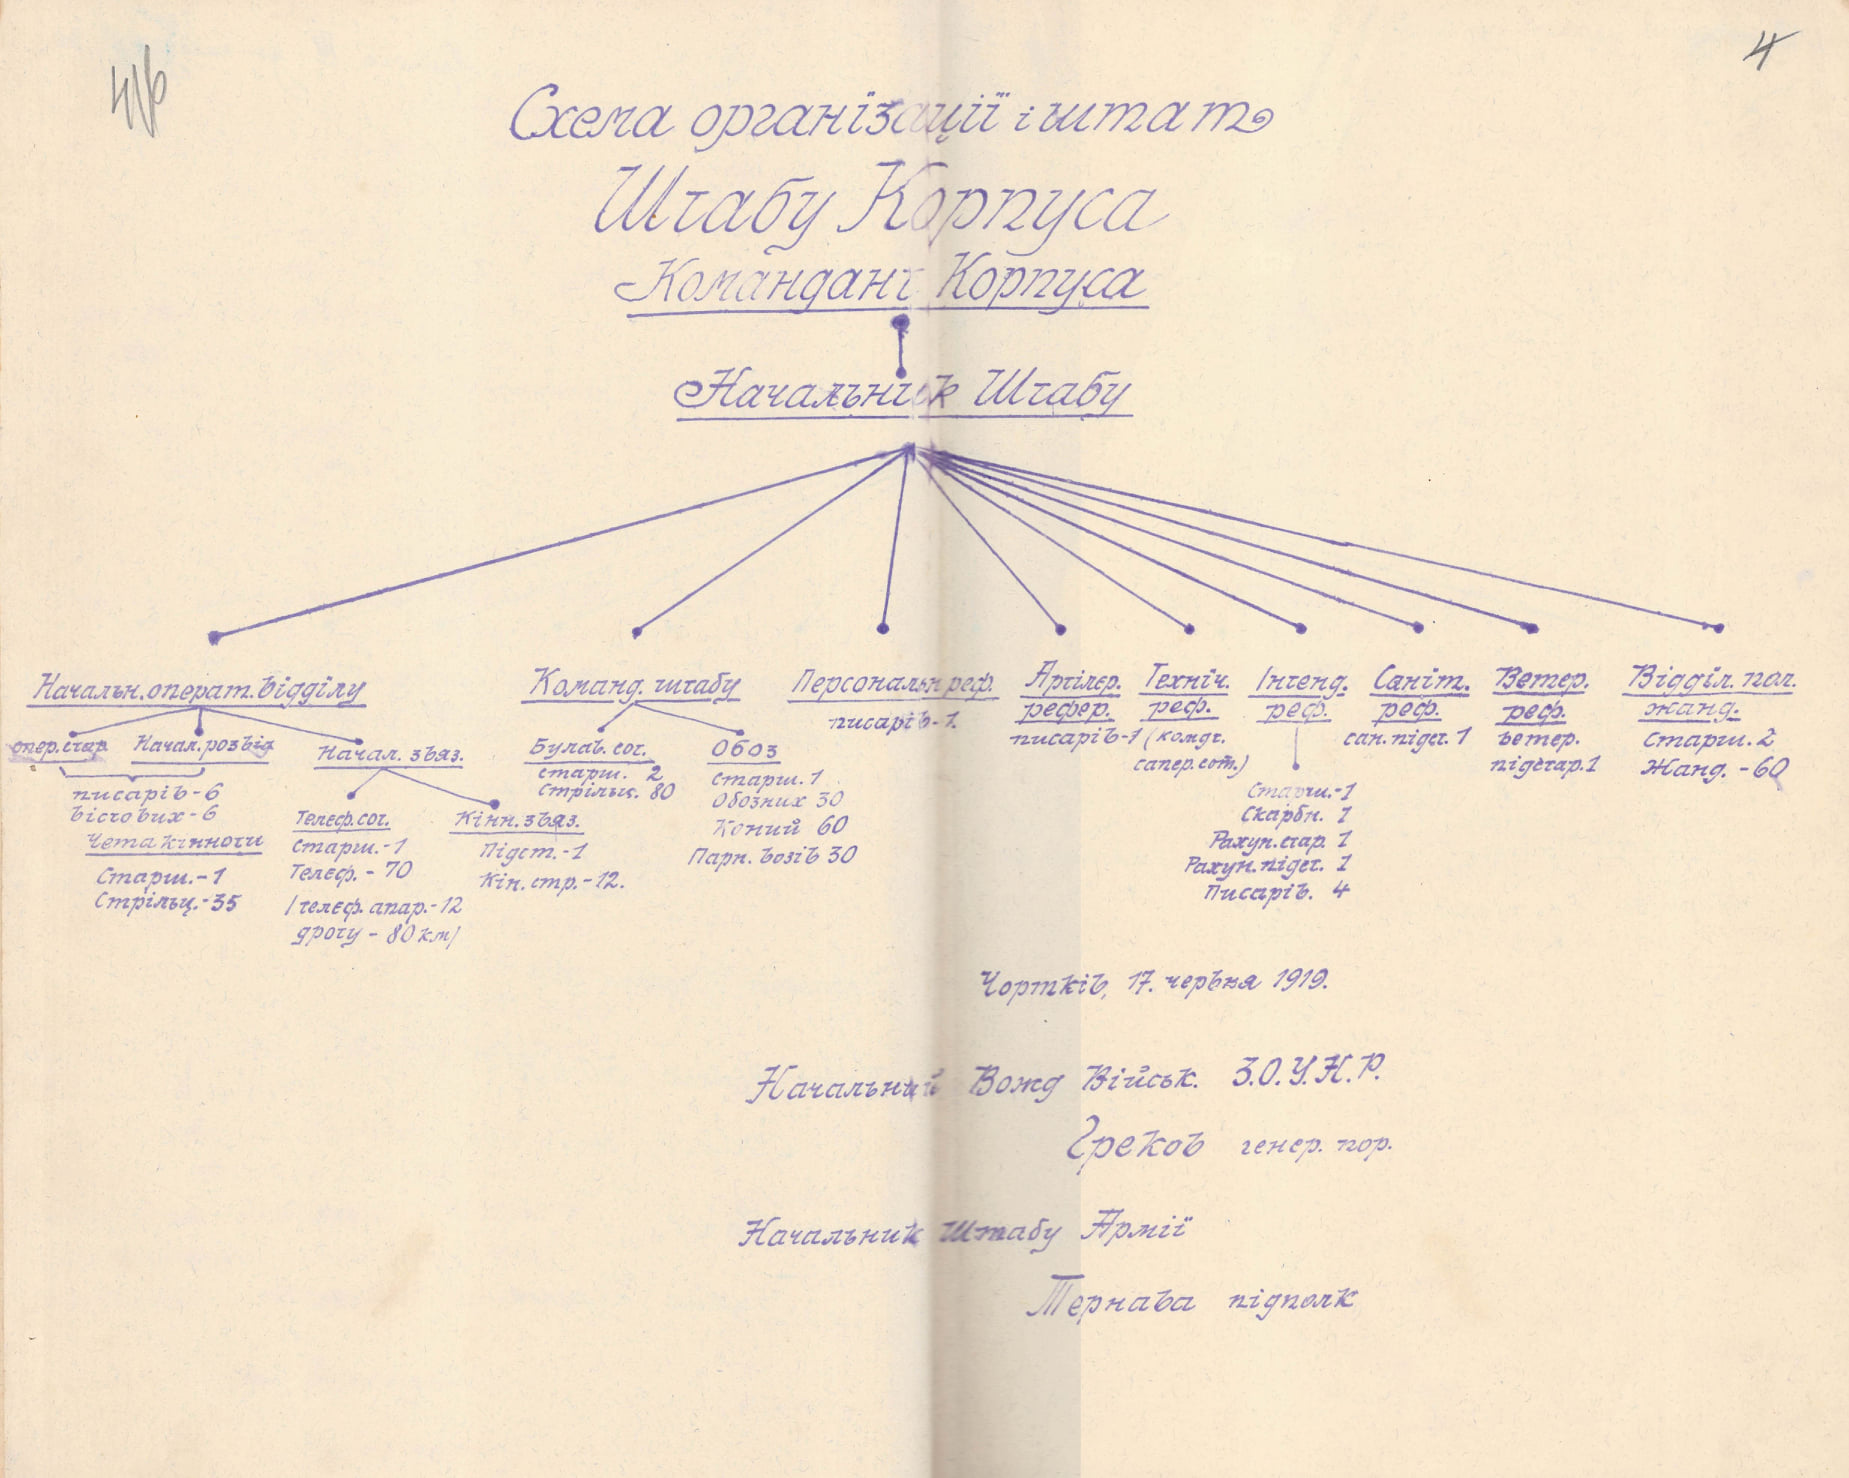 4
Схема орґанїзації і штат
Штабу Корпуса
Командант Корпуса
Начальник Штабу
Начальн. операт. відділу
опер. стар.
Начал. розвід
писарів - 6
вістових - 6
Чета кінноти
Старш. - 1
Стрільц. - 35
Начал. звяз.
Телєф. сот.
Старш. - 1
Телєф. - 70
/ телєф. апар. - 12
дроту - 80 км /
Кінн. звяз.
Підст. - 1
Кін. стр. - 12.
Команд. штабу
Булав. сот.
старш. 2
стрільц. 80
Обоз
Старш. 1
Обозних 30
Коний 60
Парн. возів 30
Персональн реф.
писарів - 1.
Артілєр.
рефер.
писарів - 1
Техніч.
реф.
( комдт.
сапер. сот. )
Інтенд.
реф.
Старш. - 1
Скарбн. 1
Рахун. стар. 1
Рахун. підст. 1
Писарів. 4
Саніт.
реф.
сан. підст. 1
Ветер.
реф.
ветер.
підстар. 1
Відділ. пол.
жанд.
Старш. 2
Жанд. - 60
Чортків, 17. червня 1919.
Начальний Вожд Військ. З.О.У.Н.Р.
Греков генер. пор.
Начальник Штабу Армії
Тернава підполк